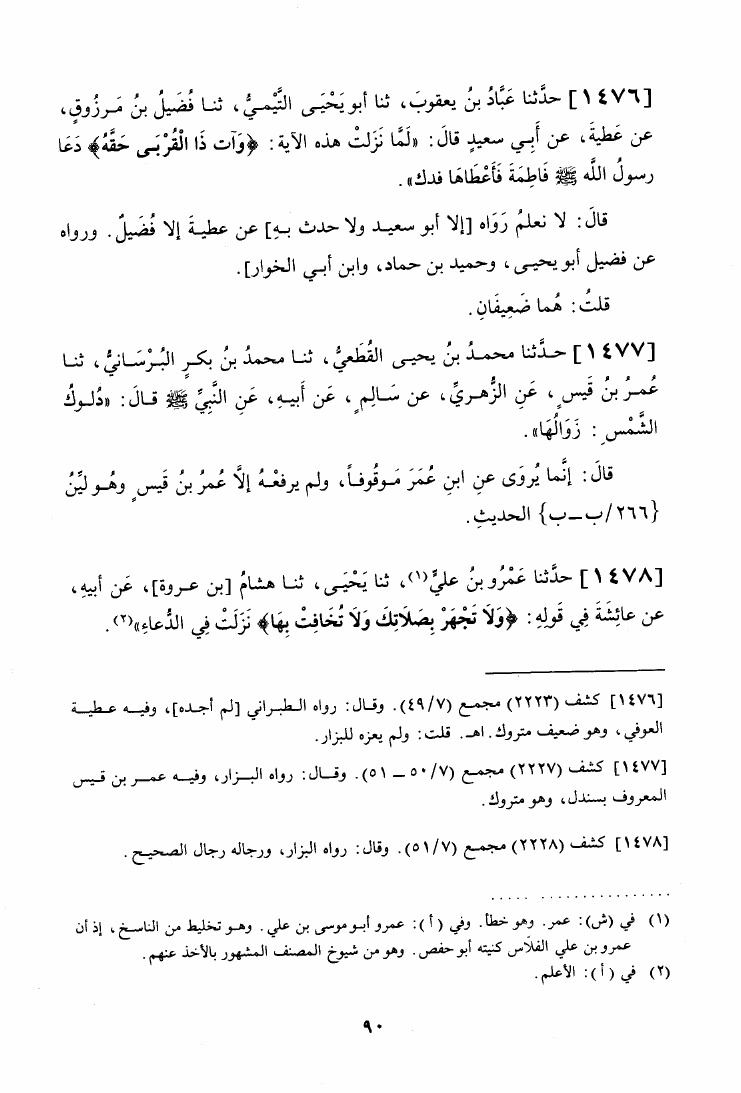 [١٤٧٦] حدَّثنا عَبَّادُ بنُ يعقوبَ، ثنا أبو يَحْيَى التَّيْميُّ، ثنا فُضَيلُ بنُ مَرزُوقٍ،
عن عَطيةَ، عن أَبي سعيدٍ قالَ: «لَمَّا نَزَلتْ هذه الآية: ﴿وَآت ذَا الْقُرْبَى حَقَّهُ﴾ دَعَا
رسولُ اللَّه ﷺ فَاطِمَةَ فَأَعْطَاهَا فدك».
قالَ: لا نعلمُ رَوَاه [إلا أبو سعيد ولا حدث به] عن عطيةَ إلا فُضَيلٌ. ورواه
عن فضيل أبو يحيى، وحميد بن حماد، وابن أبي الخوار].
قلتُ: هُما ضَعِيفَانِ.
[١٤٧٧] حدَّثنا محمدُ بنُ يحيى القُطَعيُّ، ثنا محمدُ بنُ بكرٍ البُرْسَانيُّ، ثنا
عُمرُ بنُ قَيسٍ، عَنِ الزُّهريِّ، عن سَالِمٍ، عَن أَبيهِ، عَنِ النَّبيِّ ﷺ قالَ: «دُلوكُ
الشَّمْسِ: زَوَالُهَا».
قالَ: إنَّما يُروَى عنِ ابنِ عُمَرَ مَوقُوفاً، ولم يرفعْهُ إلاَّ عُمرُ بنُ قَيسٍ وهُو ليِّنُ
{٢٦٦/ب-ب} الحديثِ.
[١٤٧٨] حدَّثنا عَمْرُو بنُ عليٍّ(١)، ثنا يَحْيَى، ثنا هشامُ [بن عروة]، عَن أبيهِ،
عن عائِشَةَ فِي قَولِهِ: ﴿وَلَا تَجْهَرْ بِصَلَاتِكَ وَلَا تُخَافِتْ بِهَا﴾ نَزَلَتْ فِي الدُّعاءِ»(٢).
[١٤٧٦] كشف (٢٢٢٣) مجمع (٤٩/٧). وقال: رواه الطبراني [لم أجده]، وفيه عطية
العوفي، وهو ضعيف متروك. اهـ. قلت: ولم يعزه للبزار.
[١٤٧٧] كشف (٢٢٢٧) مجمع (٥٠/٧ - ٥١). وقال: رواه البزار، وفيه عمر بن قيس
المعروف بسندل، وهو متروك.
[١٤٧٨] كشف (٢٢٢٨) مجمع (٥١/٧). وقال: رواه البزار، ورجاله رجال الصحيح.
(١) في (ش): عمر. وهو خطأ. وفي (أ): عمرو أبو موسى بن علي. وهو تخليط من الناسخ، إذ أن
عمرو بن علي الفلاس كنيته أبو حفص. وهو من شيوخ المصنف المشهور بالأخذ عنهم.
(٢) في (أ): الأعلم.
٩٠